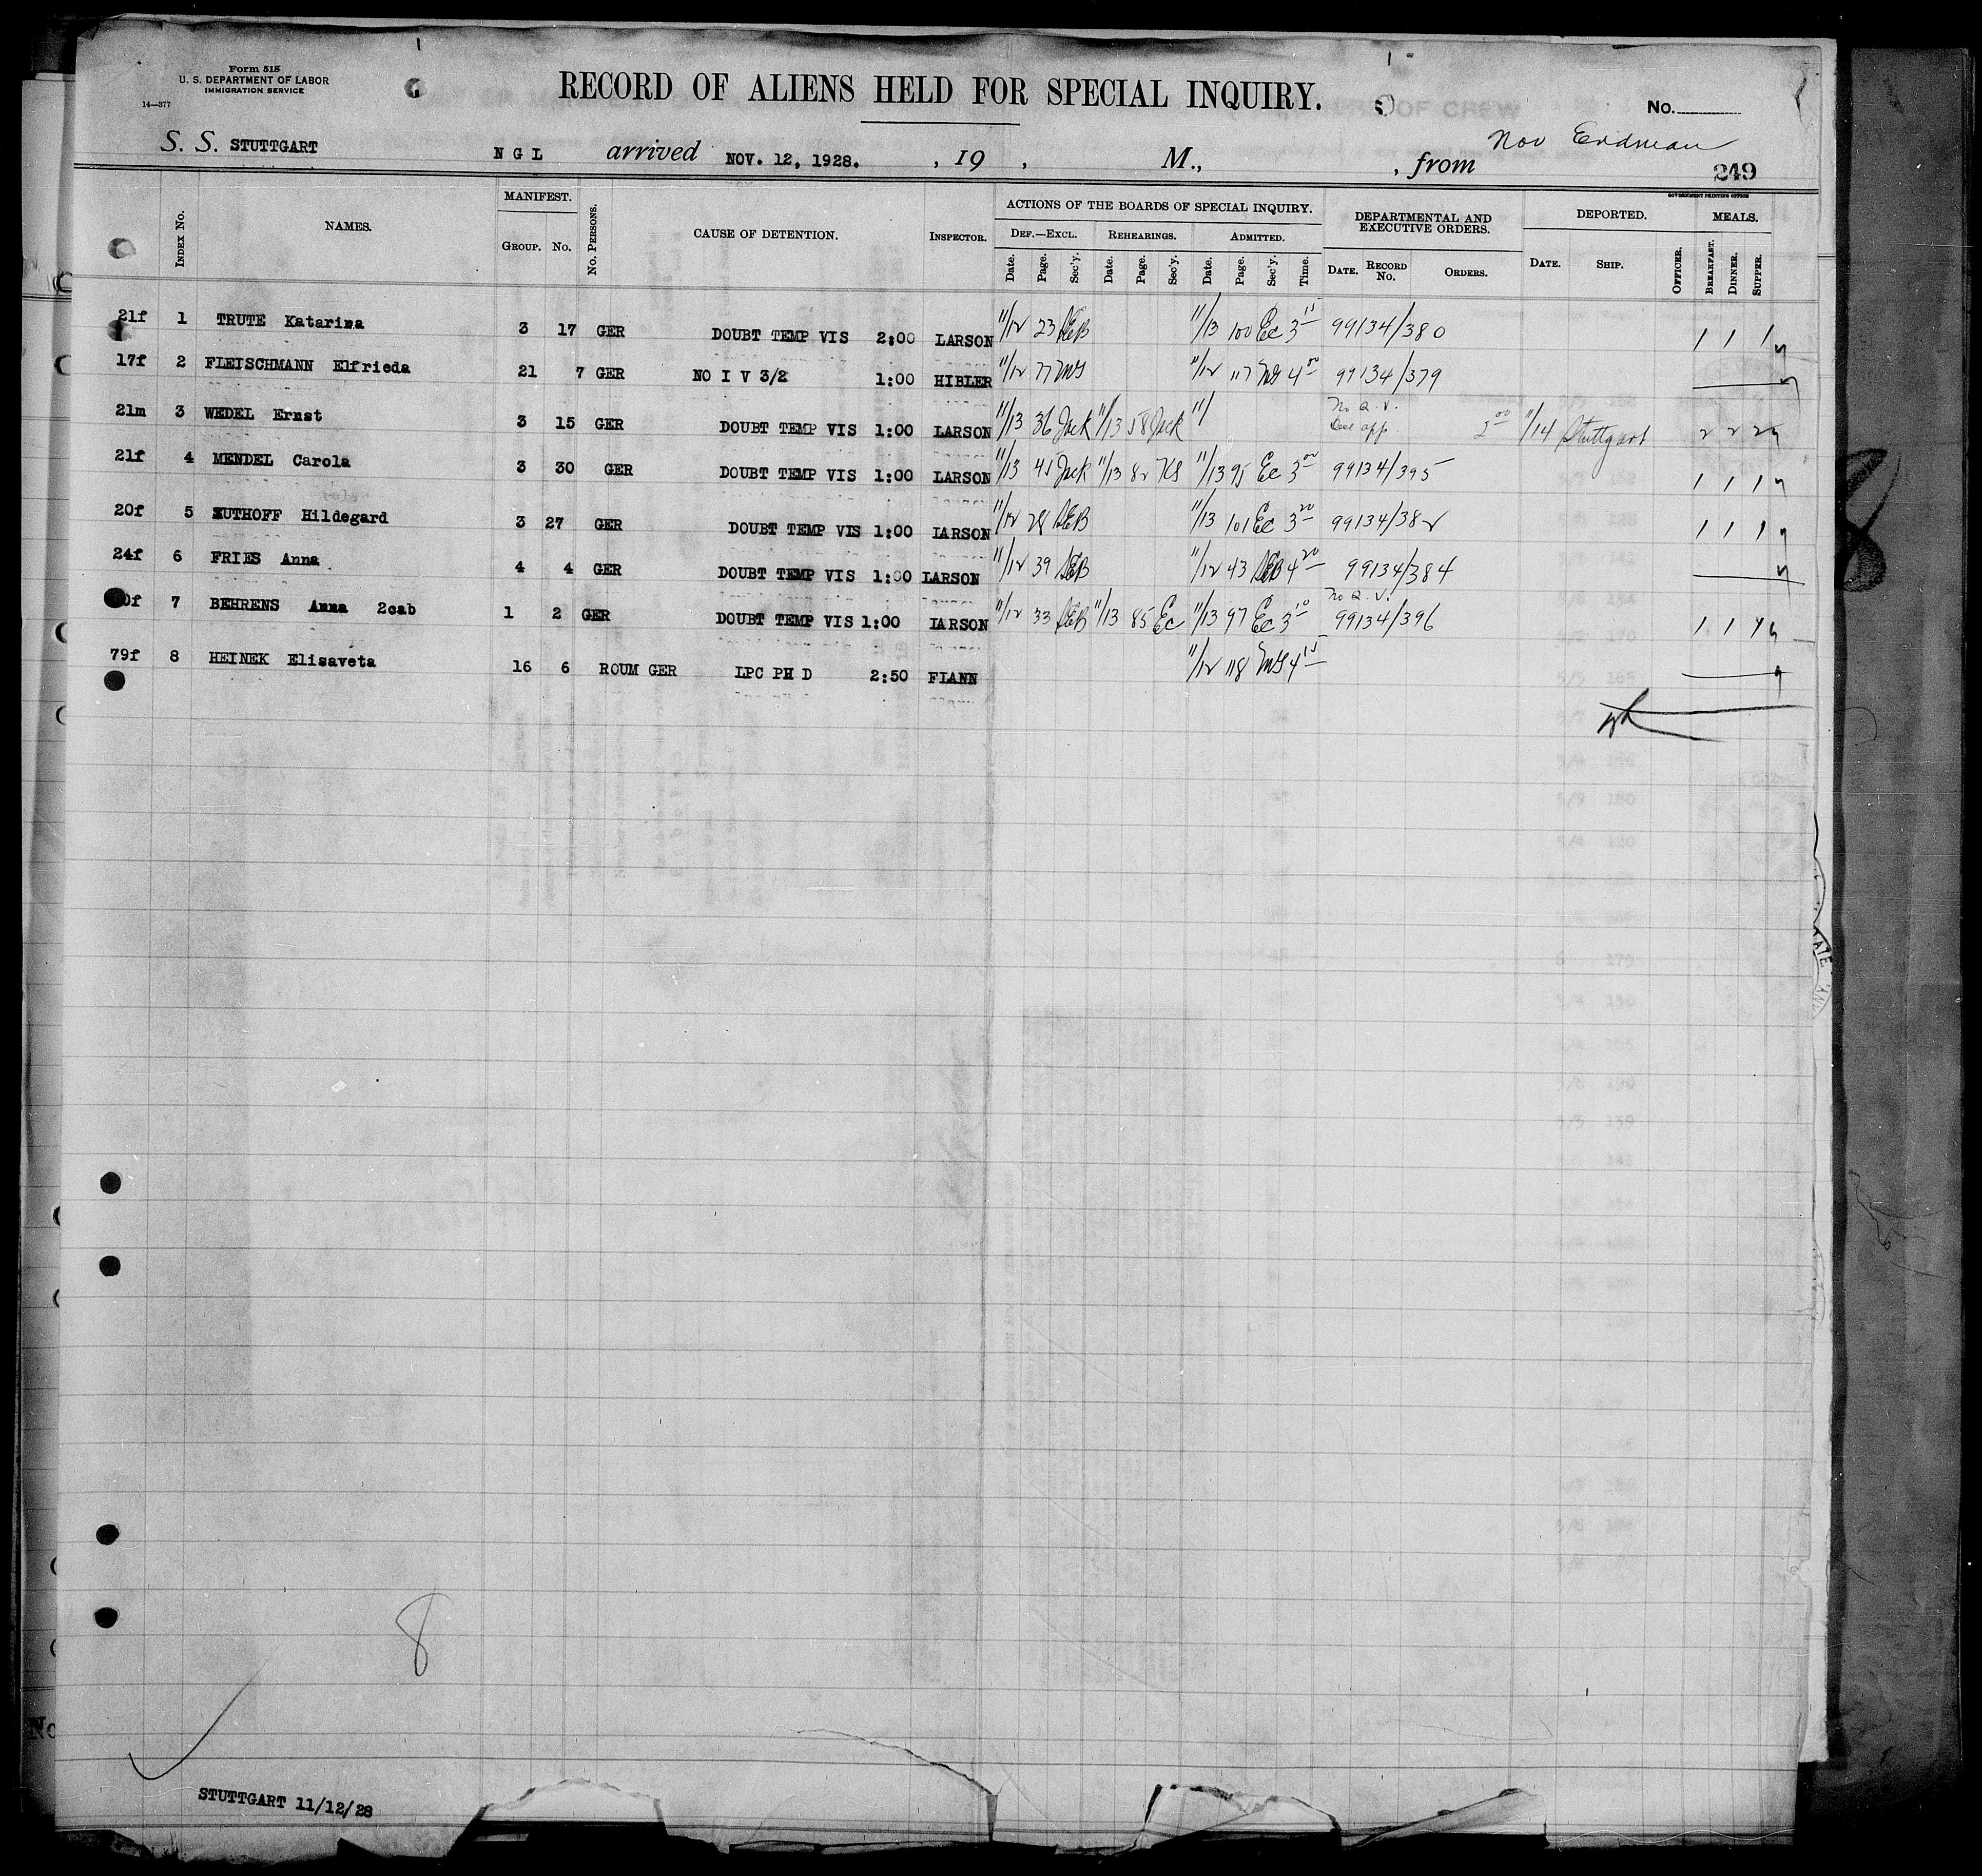 Form 518
U. S. DEPARTMENT OF LABOR
IMMIGRATION SERVICE
14—377
RECORD OF ALIENS HELD FOR SPECIAL INQUIRY.
No.
S. S. STUTTGART N G L arrived NOV. 12, 1928. , 19 , M., , from Nov Erdman
249
GOVERNMENT PRINTING OFFICE
INDEX NO. NAMES. MANIFEST. GROUP. NO. NO. PERSONS. CAUSE OF DETENTION. INSPECTOR. ACTIONS OF THE BOARDS OF SPECIAL INQUIRY. DEPARTMENTAL AND EXECUTIVE ORDERS. DEPORTED. MEALS.
DEF.—EXCL. REHEARINGS. ADMITTED.
Date. Page. Sec'y. Date. Page. Sec'y. Date. Page. Sec'y. Time. DATE. RECORD No. ORDERS. DATE. SHIP. OFFICER. BREAKFAST. DINNER. SUPPER.
21f 1 TRUTE Katarina 3 17 GER DOUBT TEMP VIS 2:00 LARSON 11/12 23 DEB 11/13 100 Ec 3 15 99134/380 1 1 1
17f 2 FLEISCHMANN Elfrieda 21 7 GER NO I V 3/2 1:00 HIBLER 11/12 77 MG 11/12 117 MG 4 00 99134/379
21m 3 WEDEL Ernst 3 15 GER DOUBT TEMP VIS 1:00 LARSON 11/13 36 Jack 11/13 58 Jack 11/ No Q. V. app. 2 00 11/14 Stuttgart 2 2 2
21f 4 MENDEL Carola 3 30 GER DOUBT TEMP VIS 1:00 LARSON 11/13 41 Jack 11/13 82 KS 11/13 95 Ec 3 00 99134/395 1 1 1
20f 5 SUTHOFF Hildegard 3 27 GER DOUBT TEMP VIS 1:00 LARSON 11/12 28 DEB 11/13 101 Ec 3 20 99134/382 1 1 1
24f 6 FRIES Anna 4 4 GER DOUBT TEMP VIS 1:00 LARSON 11/12 39 DEB 11/12 43 DEB 4 20 99134/384
7 BEHRENS Anna 2cab 1 2 GER DOUBT TEMP VIS 1:00 LARSON 11/12 33 DEB 11/13 85 Ec 11/13 97 Ec 3 10 No Q. V. 99134/396 1 1 1
79f 8 HEINEK Elisaveta 16 6 ROUM GER LPC PH D 2:50 FLANN 11/12 118 MG 4 15
8
STUTTGART 11/12/28